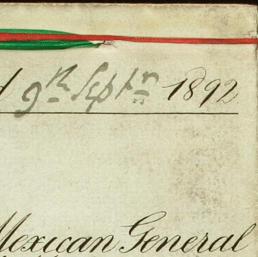 9th Septr 1892
Mexican General